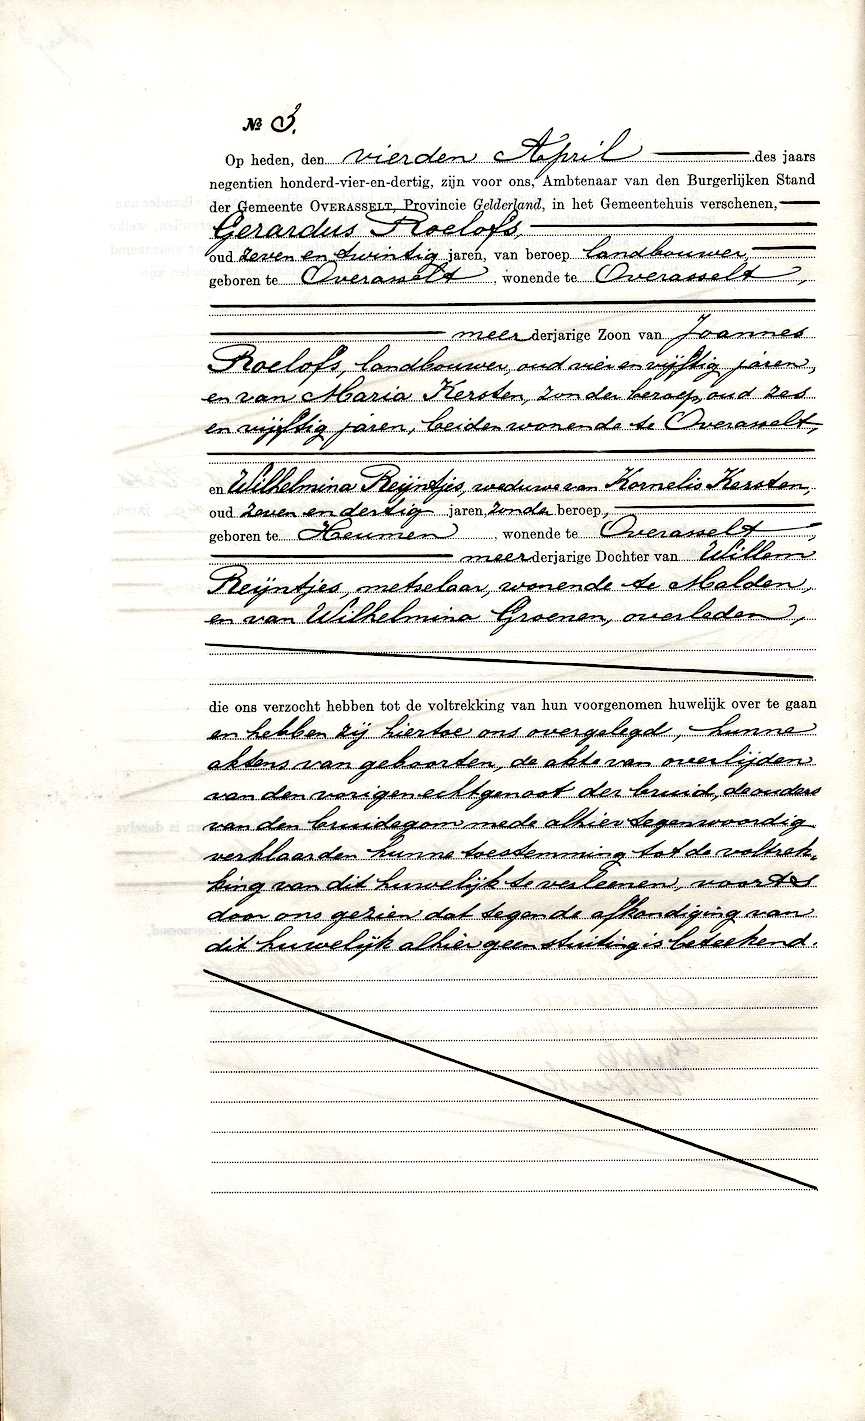 № 3.
Op heden, den vierden April des jaars
negentien honderd-vier-en-dertig, zijn voor ons, Ambtenaar van den Burgerlijken Stand
der Gemeente OVERASSELT, Provincie Gelderland, in het Gemeentehuis verschenen,
Gerardus Roelofs,
oud zeven en twintig jaren, van beroep landbouwer,
geboren te Overasselt, wonende te Overasselt,
meerderjarige Zoon van Joannes
Roelofs, landbouwer, oud vier en vijftig jaren,
en van Maria Kersten, zonder beroep, oud zes
en vijftig jaren, beiden wonende te Overasselt,
en Wilhelmina Reijntjes, weduwe van Kornelis Kersten,
oud zeven en dertig jaren, zonder beroep,
geboren te Heumen, wonende te Overasselt,
meerderjarige Dochter van Willem
Reijntjes, metselaar, wonende te Malden,
en van Wilhelmina Groenen, overleden,
die ons verzocht hebben tot de voltrekking van hun voorgenomen huwelijk over te gaan
en hebben zij hiertoe ons overgelegd, hunne
aktens van geboorten, de akte van overlijden
van den vorigen echtgenoot der bruid, de ouders
van den bruidegom mede alhier tegenwoordig
verklaarden hunne toestemming tot de voltrek-
king van dit huwelijk te verleenen, voorts
door ons gezien dat tegen de afkondiging van
dit huwelijk alhier geen stuiting is beteekend.